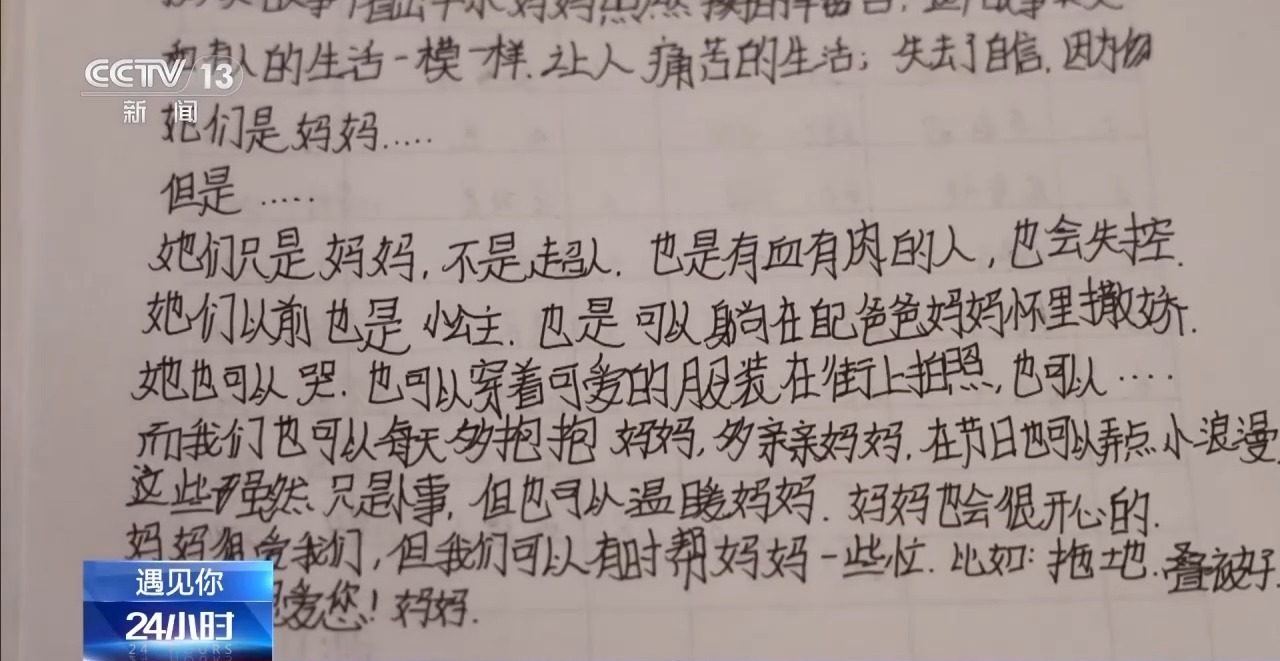 的生活一模一样.让人痛苦的生活;失去了自信.因为
她们是妈妈.....
但是.....
她们只是妈妈,不是超人.也是有血有肉的人,也会失控.
她们以前也是小公主.也是可以躺在自己爸爸妈妈怀里撒娇.
她也可以哭.也可以穿着可爱的服装在街上拍照,也可以....
而我们也可以每天多抱抱妈妈,多亲亲妈妈.在节日也可以弄点小浪漫
这些虽然只是小事,但也可以温暖妈妈.妈妈也会很开心的.
妈妈很爱我们,但我们可以有时帮妈妈一些忙.比如:拖地.叠被好
爱您!妈妈.
CCTV 13
新闻
遇见你
24小时
24 HOURS